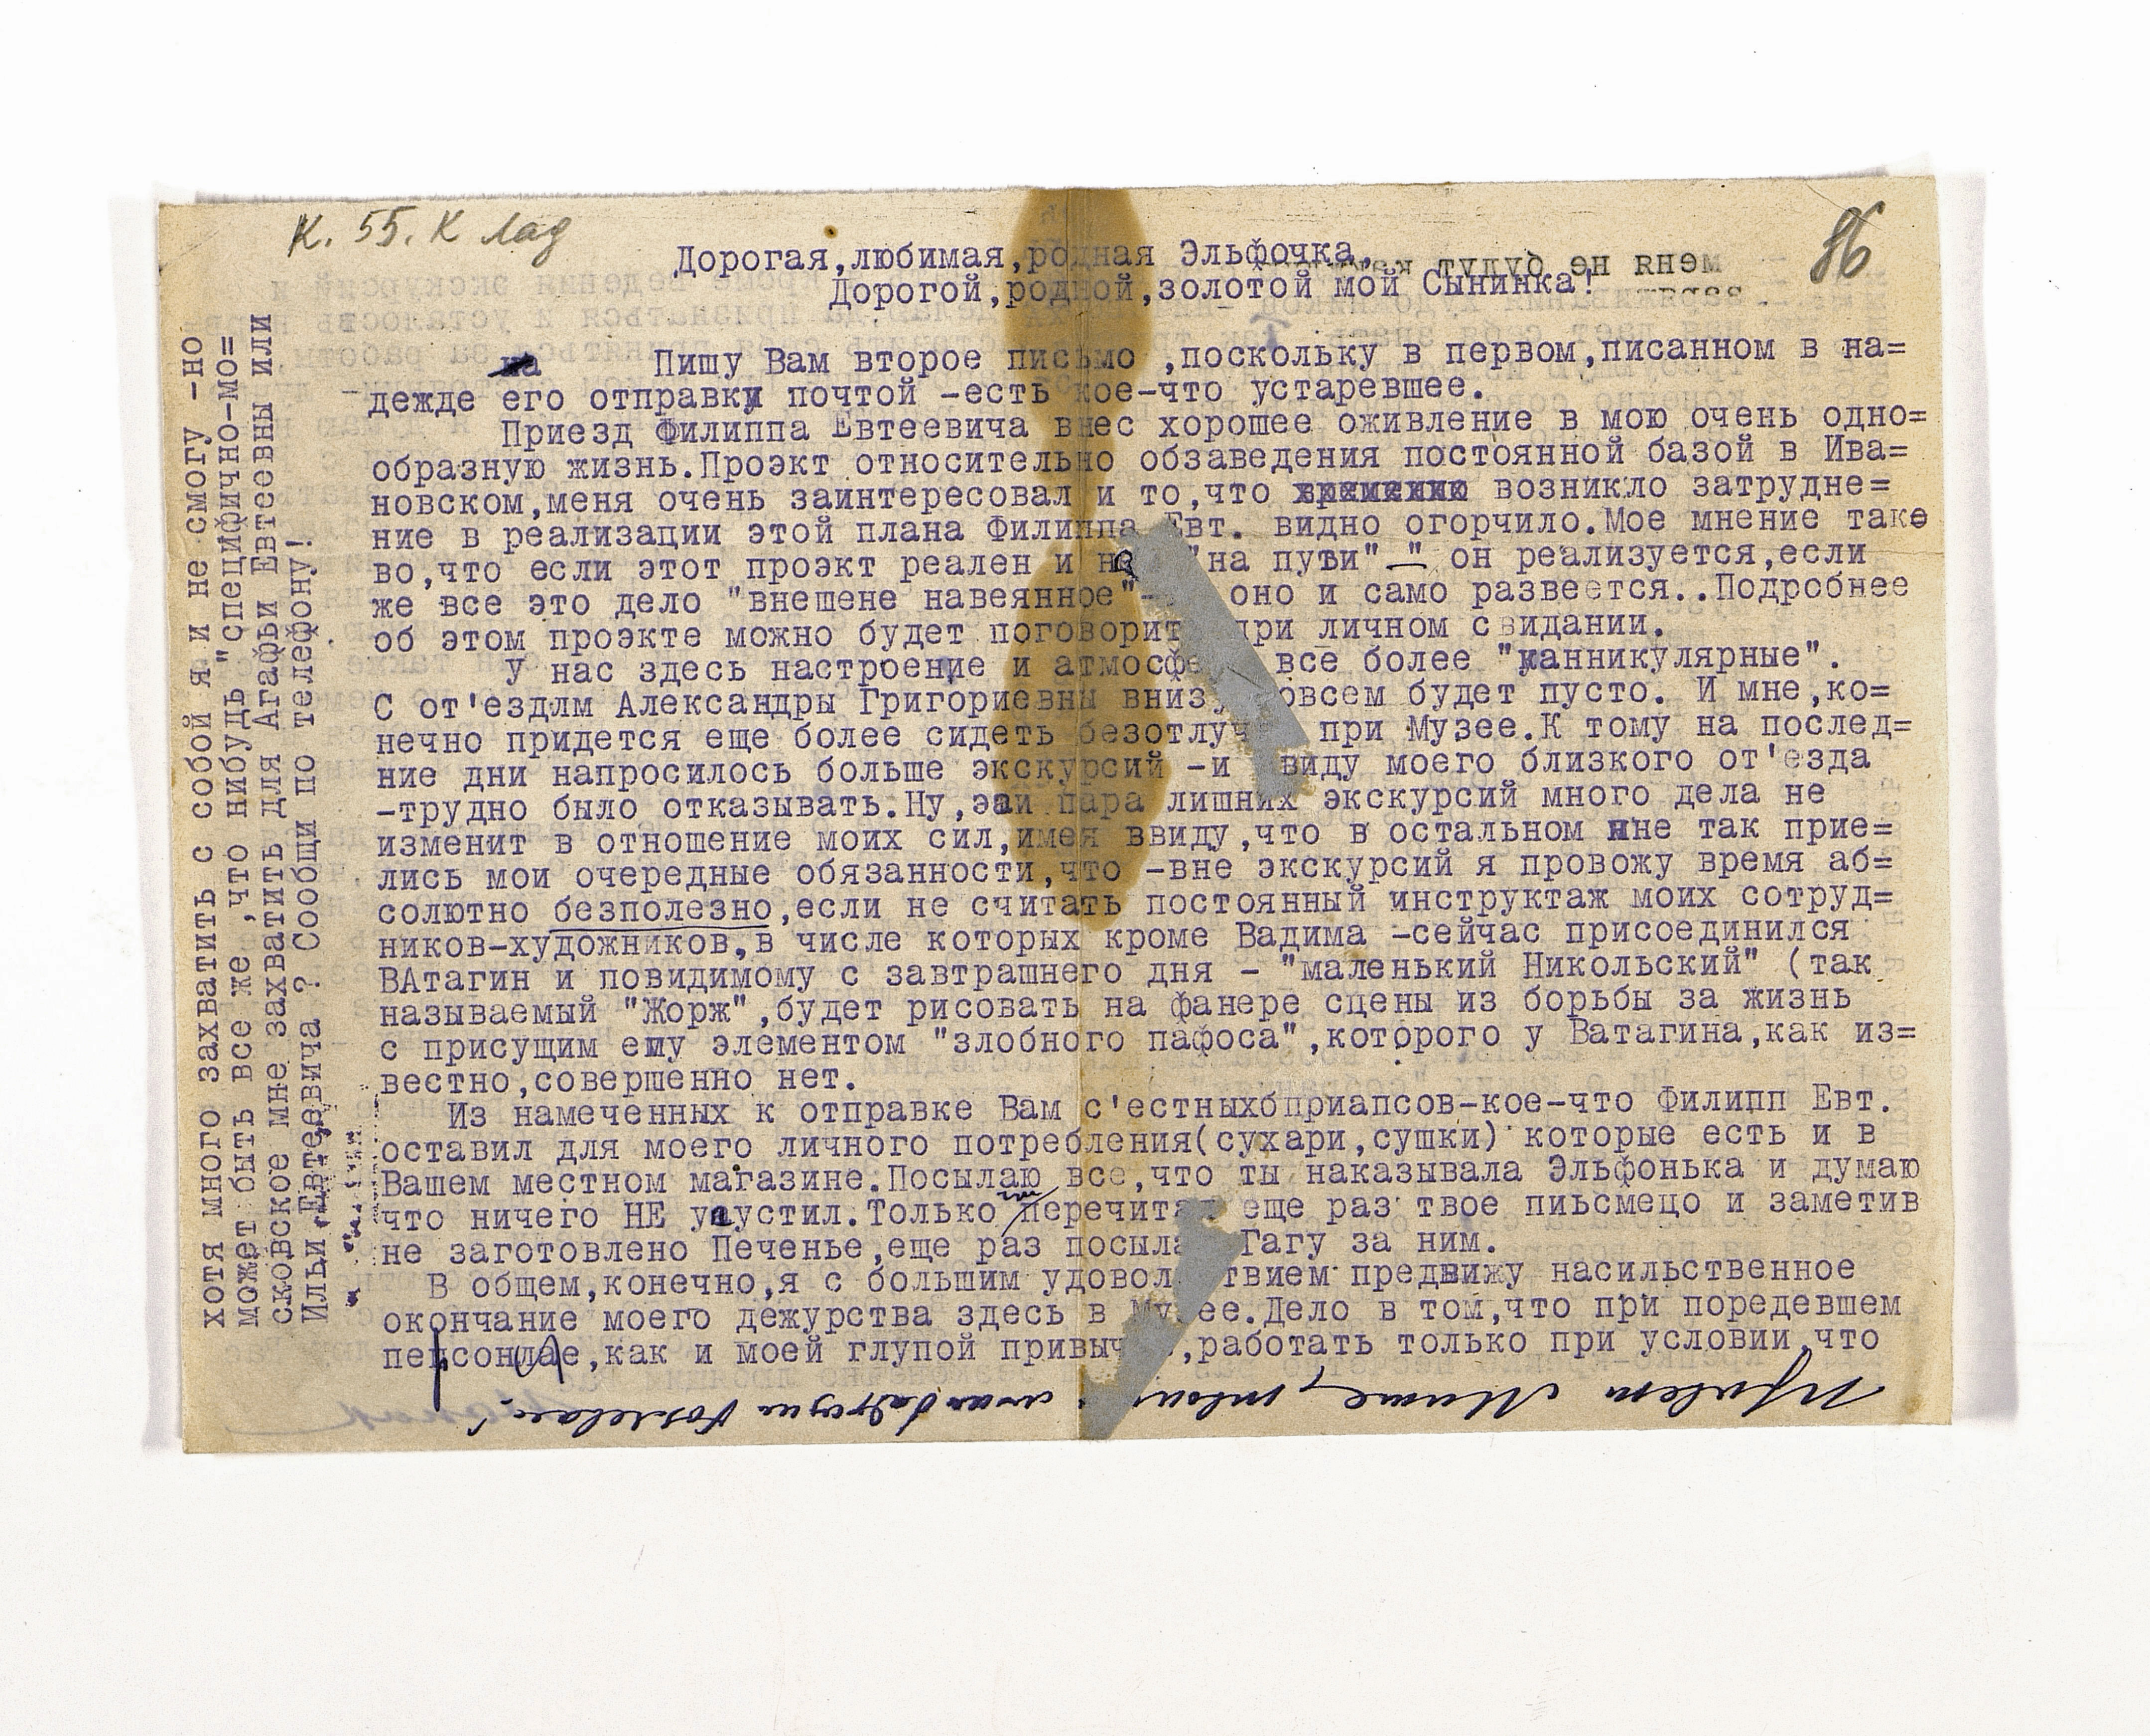 К. 55. К Лад
86
Дорогая,любимая,родная Эльфочка,
Дорогой,родной,золотой мой Сынинка!
Пишу Вам второе письмо ,поскольку в первом,писанном в на=
дежде его отправки почтой -есть кое-что устаревшее.
Приезд Филиппа Евтеевича внес хорошее оживление в мою очень одно=
образную жизнь.Проэкт относительно обзаведения постоянной базой в Ива=
новском,меня очень заинтересовал и то,что временно возникло затрудне=
ние в реализации этой плана Филиппа Евт. видно огорчило.Мое мнение тако
во,что если этот проэкт реален и "на пути" — он реализуется,если
же все это дело "внешене навеянное"- оно и само развеется..Подробнее
об этом проэкте можно будет поговорить при личном свидании.
У нас здесь настроение и атмосфе все более "канникулярные".
С от'ездлм Александры Григориевны внизу овсем будет пусто. И мне,ко=
нечно придется еще более сидеть безотлуч при Музее.К тому на послед=
ние дни напросилось больше экскурсий -и виду моего близкого от'езда
-трудно было отказывать.Ну,эаи пара лишних экскурсий много дела не
изменит в отношение моих сил,имея ввиду,что в остальном мне так прие=
лись мои очередные обязанности,что -вне экскурсий я провожу время аб=
солютно безполезно,если не считать постоянный инструктаж моих сотруд=
ников-художников,в числе которых кроме Вадима -сейчас присоединился
ВАтагин и повидимому с завтрашнего дня - "маленький Никольский" (так
называемый "Жорж",будет рисовать на фанере сцены из борьбы за жизнь
с присущим ему элементом "злобного пафоса",которого у Ватагина,как из=
вестно,совершенно нет.
Из намеченных к отправке Вам с'естныхбприапсов-кое-что Филипп Евт.
оставил для моего личного потребления(сухари,сушки) которые есть и в
Вашем местном магазине.Посылаю все,что ты наказывала Эльфонька и думаю
что ничего НЕ упустил.Только перечита еще раз твое пиьсмецо и заметив
не заготовлено Печенье,еще раз посыла Гагу за ним.
В общем,конечно,я с большим удовол твием предвижу насильственное
окончание моего дежурства здесь в Музее.Дело в том,что при поредевшем
песонлае,как и моей глупой привыч ,работать только при условии,что
хотя много захватить с собой я и не смогу -но
может быть все же ,что нибудь "специфично-мо=
сковское мне захватить для Агафьи Евтеевны или
Ильи Евтеевича ? Сообщи по телефону!
Привет Мише,
меня не будут